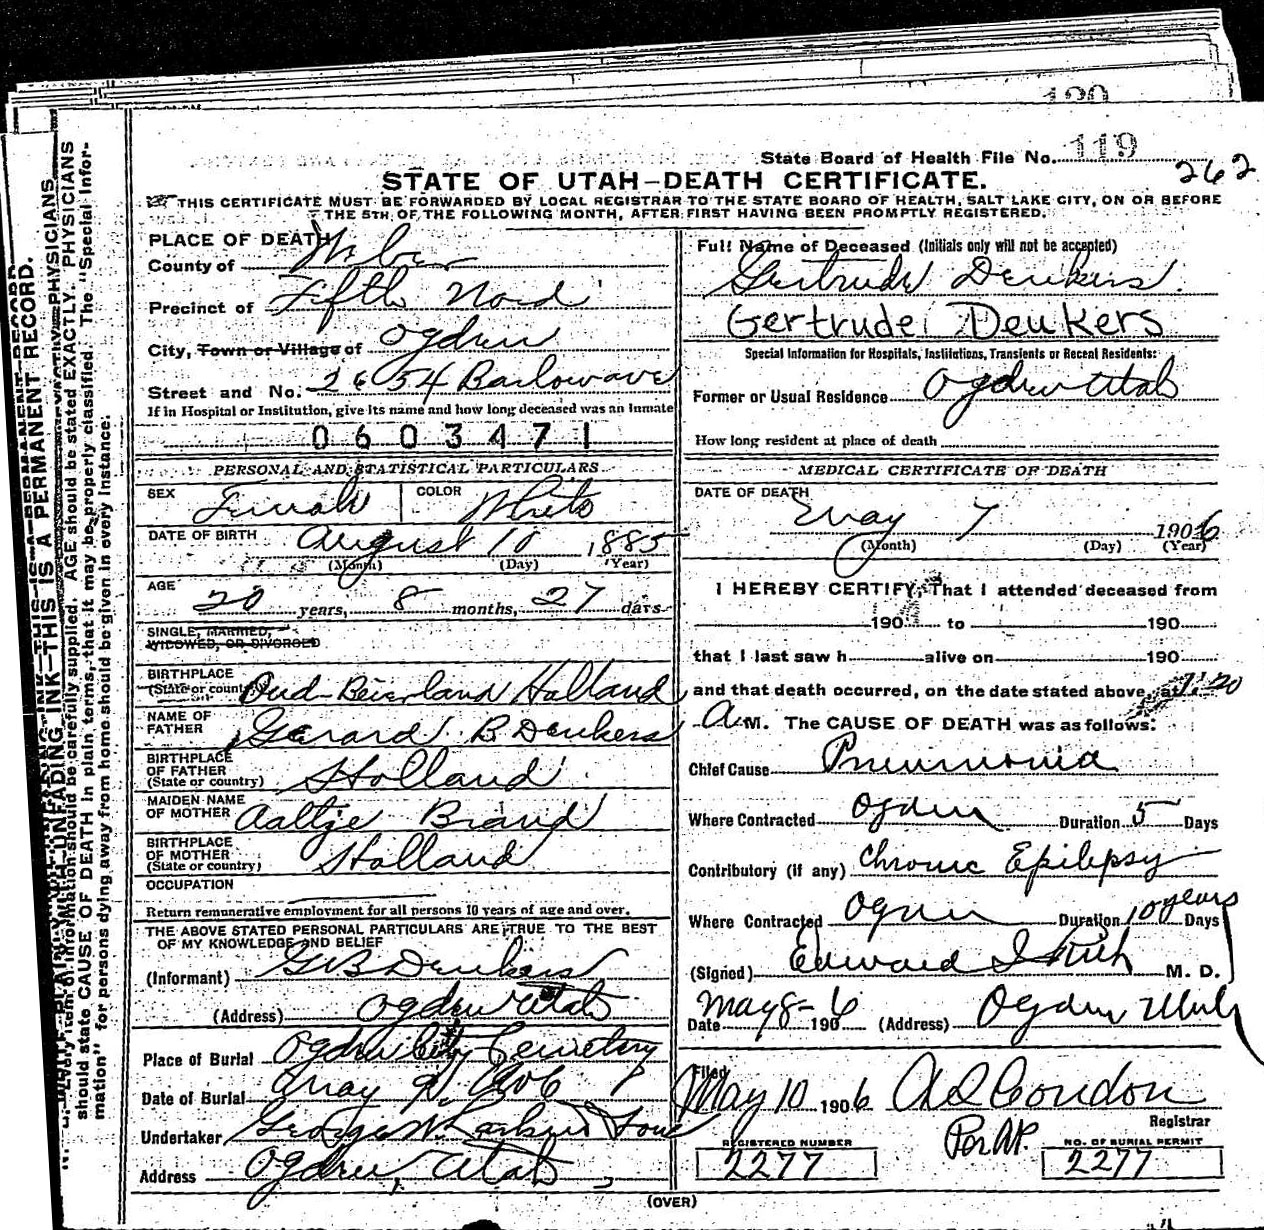 120
State Board of Health File No. 119
262
STATE OF UTAH—DEATH CERTIFICATE.
THIS CERTIFICATE MUST BE FORWARDED BY LOCAL REGISTRAR TO THE STATE BOARD OF HEALTH, SALT LAKE CITY, ON OR BEFORE
THE 5TH OF THE FOLLOWING MONTH, AFTER FIRST HAVING BEEN PROMPTLY REGISTERED.
PLACE OF DEATH
County of Weber
Precinct of Fifth Ward
City, Town or Village of Ogden
Street and No. 2654 Barlow ave
If in Hospital or Institution, give its name and how long deceased was an Inmate
0603471
PERSONAL AND STATISTICAL PARTICULARS
SEX Female COLOR White
DATE OF BIRTH August 10, 1885
(Month) (Day) (Year)
AGE 20 years, 8 months, 27 days
SINGLE, MARRIED,
WIDOWED, OR DIVORCED
BIRTHPLACE
(State or country) Oud-Beierland Holland
NAME OF
FATHER Gerard B Deukers
BIRTHPLACE
OF FATHER
(State or country) Holland
MAIDEN NAME
OF MOTHER Aaltje Brand
BIRTHPLACE
OF MOTHER
(State or country) Holland
OCCUPATION
Return remunerative employment for all persons 10 years of age and over.
THE ABOVE STATED PERSONAL PARTICULARS ARE TRUE TO THE BEST
OF MY KNOWLEDGE AND BELIEF
(Informant) G B Deukers
(Address) Ogden Utah
Place of Burial Ogden City Cemetery
Date of Burial May 9, 1906
Undertaker George W Larkin & Sons
Address Ogden, Utah
Full Name of Deceased (Initials only will not be accepted)
Gertrude Deukers.
Gertrude Deukers
Special Information for Hospitals, Institutions, Transients or Recent Residents:
Former or Usual Residence Ogden Utah
How long resident at place of death
MEDICAL CERTIFICATE OF DEATH
DATE OF DEATH
May 7 1906
(Month) (Day) (Year)
I HEREBY CERTIFY, That I attended deceased from
190 to 190
that I last saw h alive on 190
and that death occurred, on the date stated above, at 1:20
A M. The CAUSE OF DEATH was as follows:
Chief Cause Pneumonia
Where Contracted Ogden Duration 5 Days
Contributory (if any) Chronic Epilepsy
Where Contracted Ogden Duration 10 years Days
(Signed) Edward I Rich M. D.
Date May 8- 1906 (Address) Ogden Utah
Filed
May 10 1906 A S Condon
Registrar
Per AP.
REGISTERED NUMBER
2277
NO. OF BURIAL PERMIT
2277
(OVER)
THIS IS A PERMANENT RECORD.
should be carefully supplied. AGE should be stated EXACTLY. PHYSICIANS
should state CAUSE OF DEATH in plain terms, that it may be properly classified. The "Special Infor-
mation" for persons dying away from home should be given in every instance.